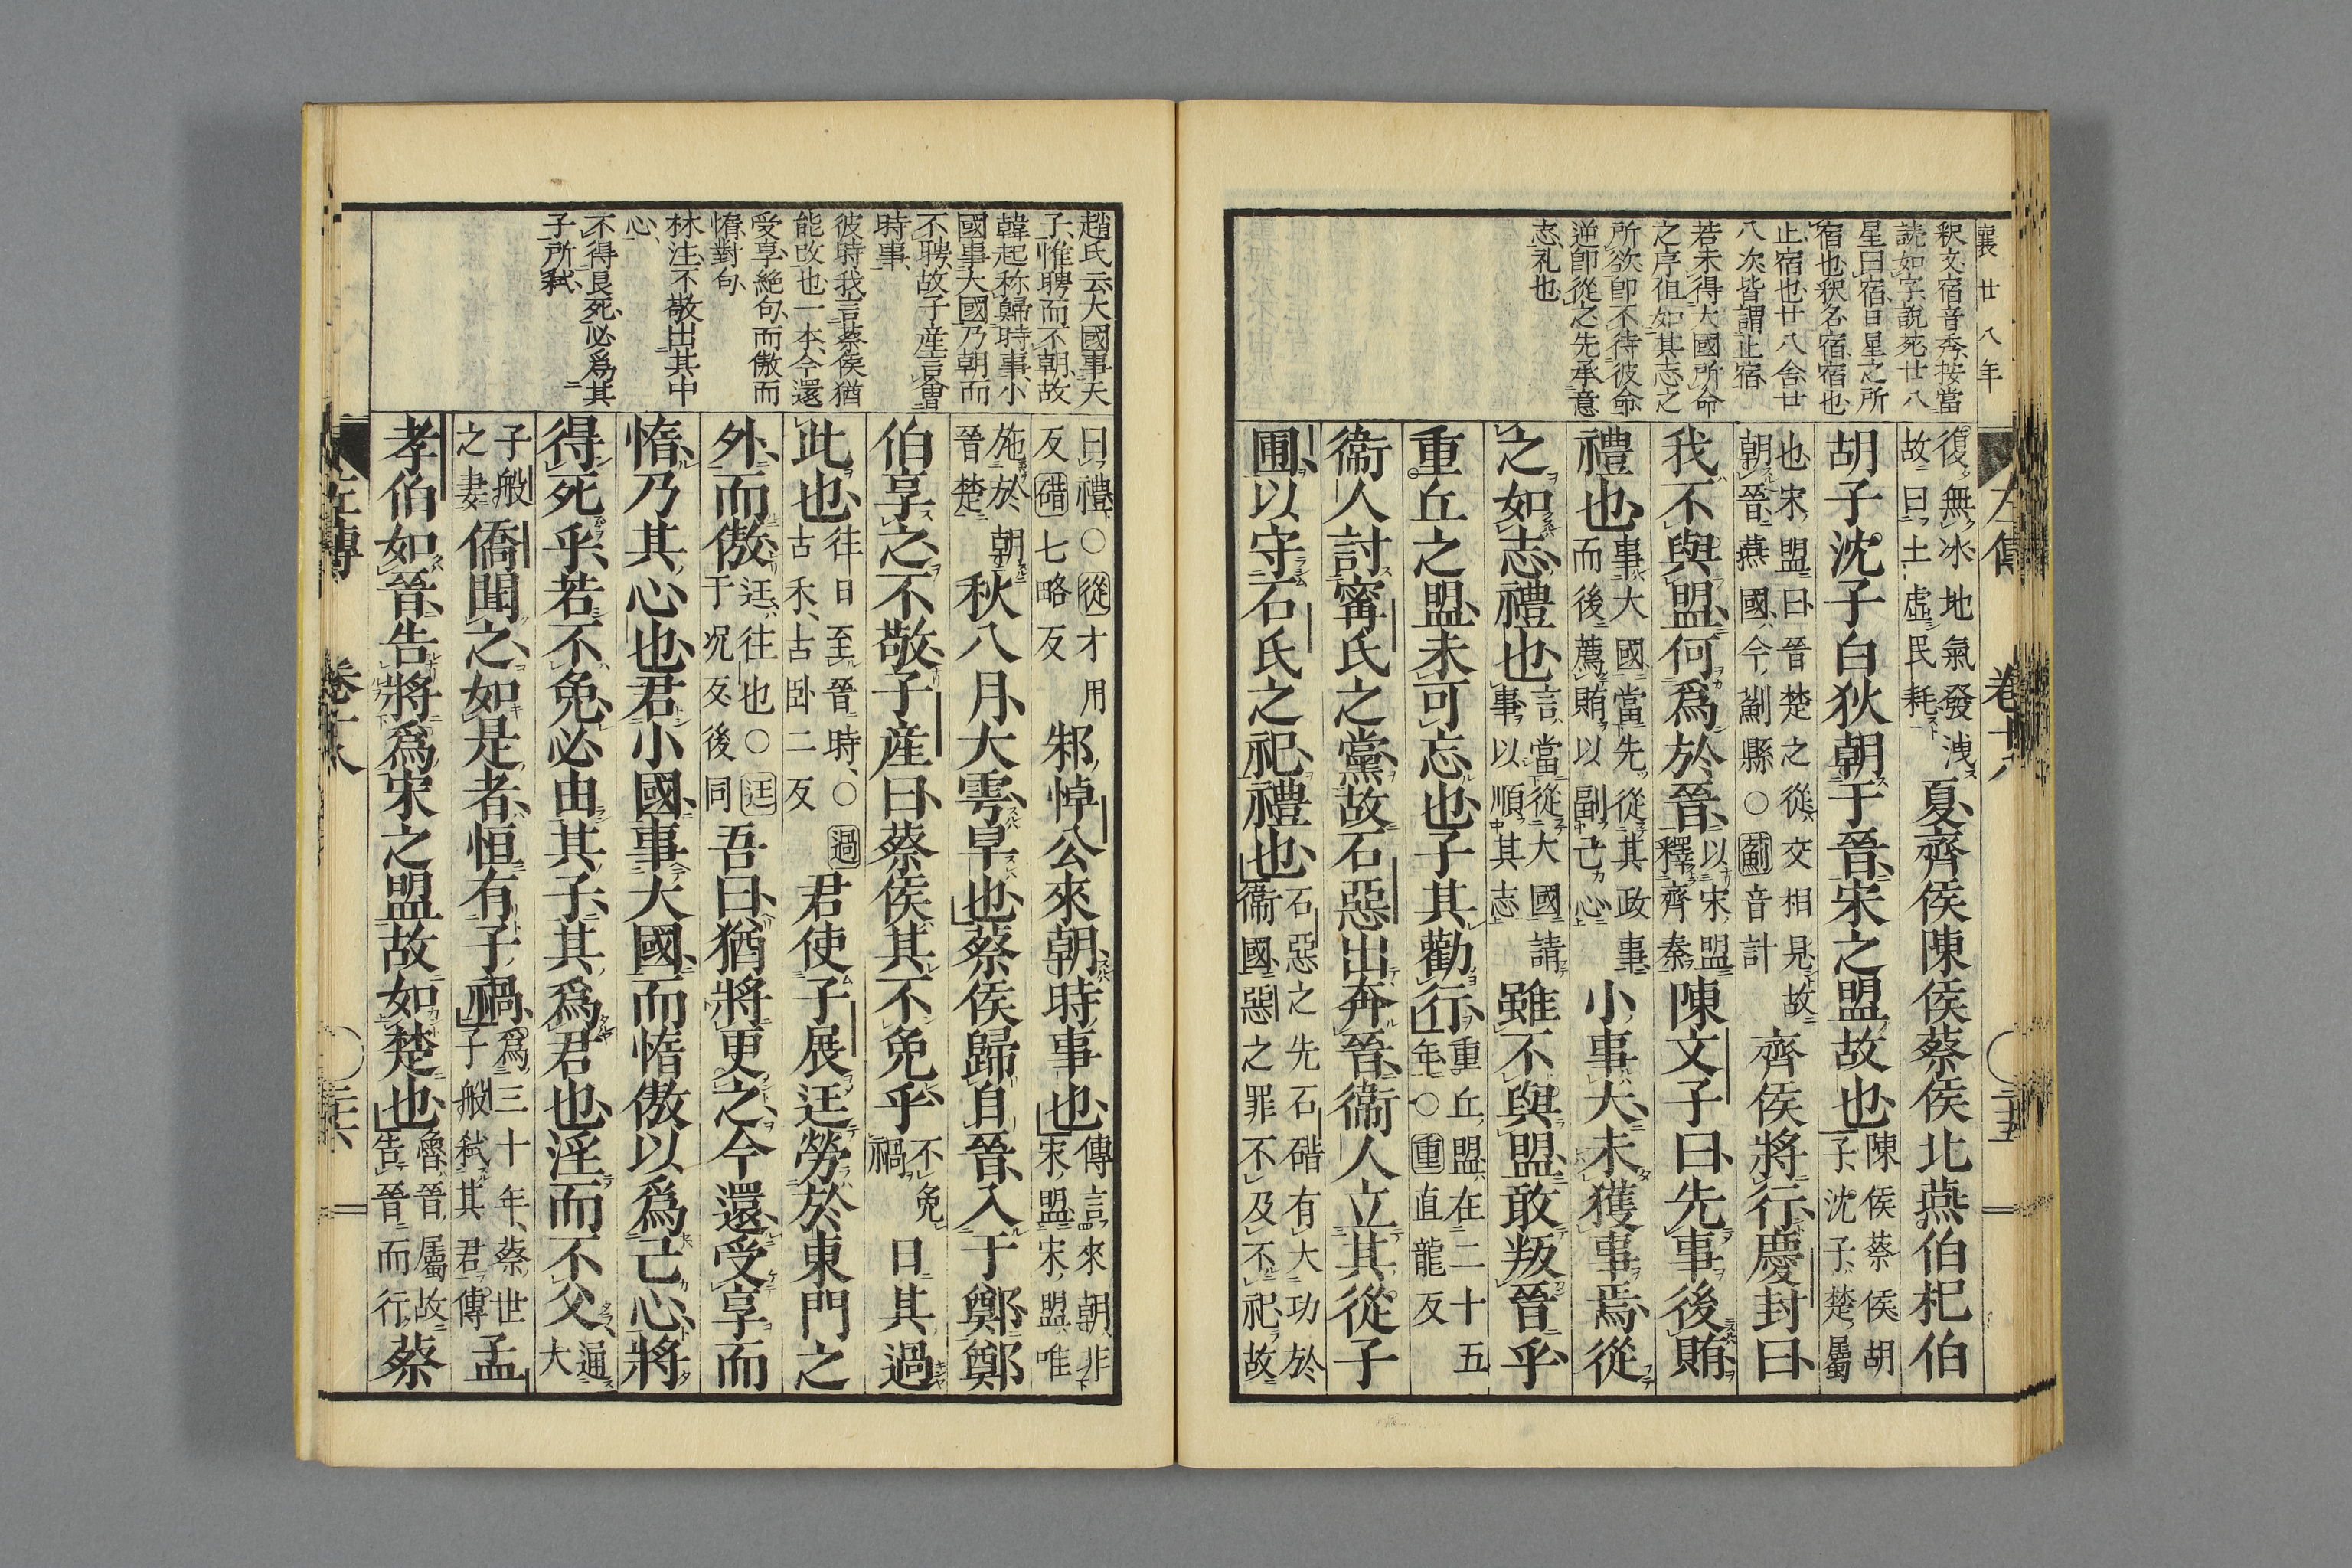 襄廿八年
釈文宿音秀按當
読如字説苑廿八
星曰宿日星之所
宿也釈名宿宿也
止宿也廿八舍廿
八次皆謂止宿
若未得大國所命
之序伹如其志之
所欲卽不待彼命
逆卽從之先承意
志礼也
復無冰地氣發洩
故曰土虛民耗
夏齊侯陳侯蔡侯北燕伯杞伯
胡子沈子白狄朝于晉宋之盟故也
陳侯蔡侯胡
子沈子楚屬
也宋盟曰晉楚之從交相見故
朝晉燕國今薊縣○薊音計
齊侯將行慶封曰
我不與盟何爲於晉
以宋盟
釋齊秦
陳文子曰先事後賄
禮也
事大國當先從其政事
而後薦賄以副己心
小事大未獲事焉從
之如志禮也
言當從大國請
事以順其志
雖不與盟敢叛晉乎
重丘之盟未可忘也子其勸行
重丘盟在二十五
年○重直龍反
衞人討甯氏之黨故石惡出奔晉衞人立其從子
圃以守石氏之祀禮也
石惡之先石碏有大功於
衞國惡之罪不及不祀故
左傳
卷十八
趙氏云大國事天
子惟聘而不朝故
韓起称歸時事小
國事大國乃朝而
不聘故子産言會
時事
彼時我言蔡侯猶
能改也一本今還
受享絶句而傲而
惰對句
林注不敬出其中
心
不得良死必爲其
子所弑
曰禮○從才用
反碏七略反
邾悼公來朝時事也
傳言來朝非
宋盟宋盟唯
施於朝
晉楚
秋八月大雩旱也蔡侯歸自晉入于鄭鄭
伯享之不敬子産曰蔡侯其不免乎
不免
禍
日其過
此也
往日至晉時○過
古禾古臥二反
君使子展迋勞於東門之
外而傲
迋往也○迋
于況反後同
吾曰猶將更之今還受享而
惰乃其心也君小國事大國而惰傲以爲己心將
得死乎若不免必由其子其爲君也淫而不父
通
大
子般
之妻
僑聞之如是者恒有子禍
爲三十年蔡世
子般弑其君傳
孟
孝伯如晉告將爲宋之盟故如楚也
魯晉屬故
告晉而行
蔡
左傳
卷十八